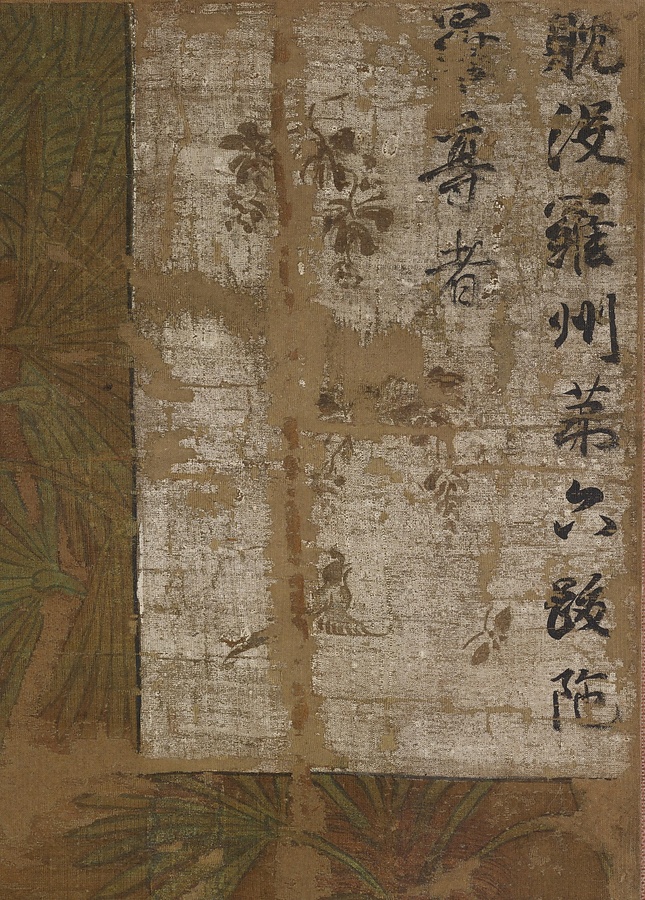 耽没羅州第六跋陀
羅尊者